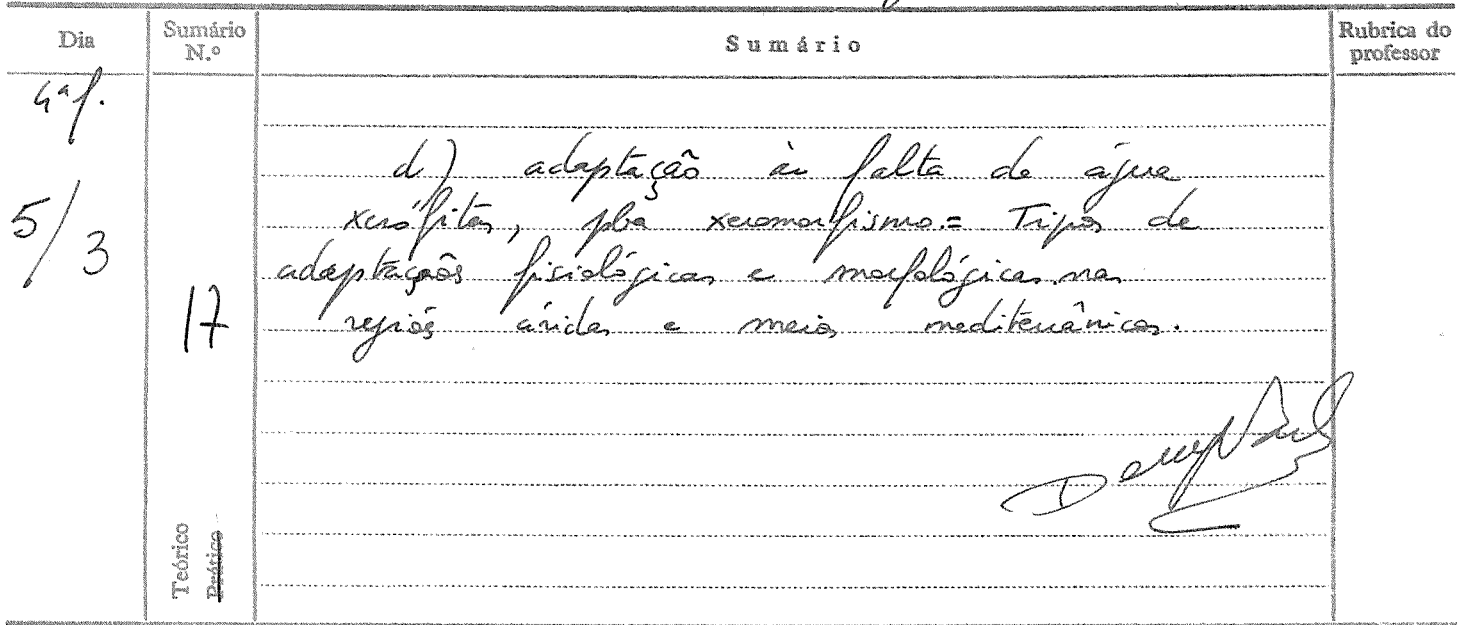 Dia
Sumário N.º
Sumário
Rubrica do professor
4ª f.
5/3
17
d) adaptação à falta de água
xerófitas, xeromorfismo = Tipos de
adaptações fisiológicas e morfológicas nas
regiões áridas e meios mediterrânicos.
Teórico
Prático